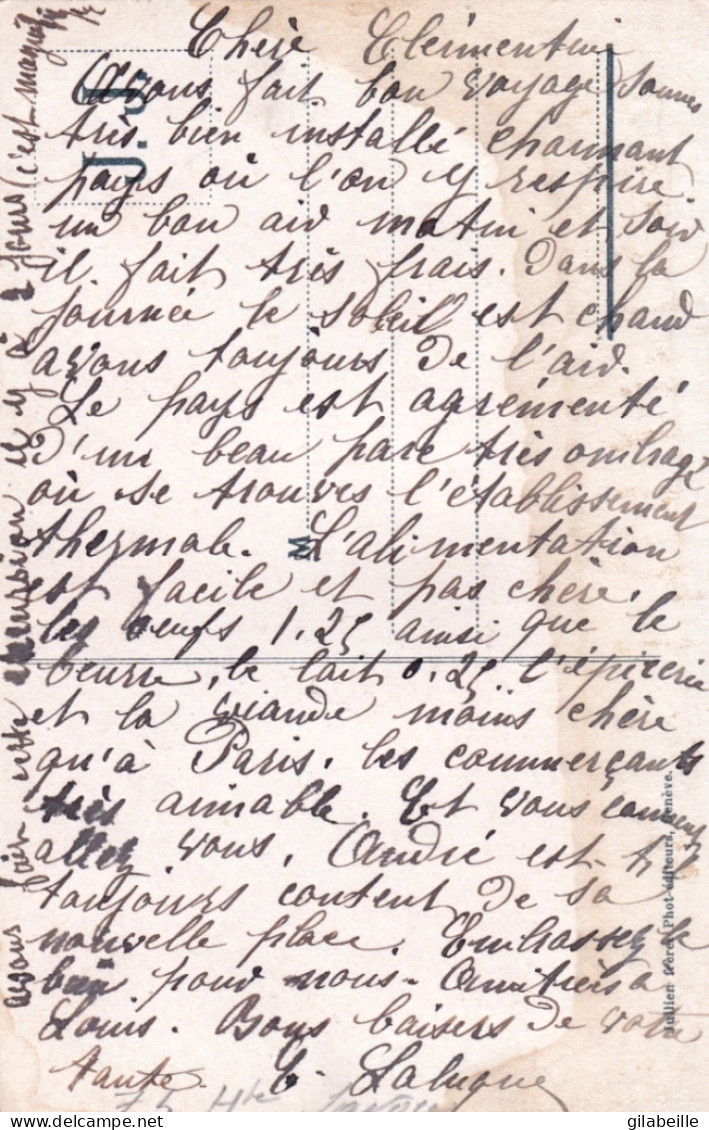 Chère Clémentine
Avons fait bon voyage sommes
très bien installé charmant
pays où l'on y respire
un bon air matin et soir
il fait très frais. Dans la
journée le soleil est chaud
avons toujours de l'air.
Le pays est agrémenté
d'un beau parc très ombragé
où se trouves l'établissement
thermale. L'alimentation
est facile et pas chère.
les oeufs 1.25 ainsi que le
beurre, le lait 0.25 l'épicerie
et la viande moins chère
qu'à Paris. les commerçants
très aimable. Et vous comment
allez vous. André est-il
toujours content de sa
nouvelle place. Embrassez le
bien pour nous. Amitiés à
Louis. Bons baisers de votre
tante. E.
avons fait une excursion il y a 2 jours c'est magnifique
J. J.
M
Jullien frères, Phot-éditeurs, Genève.
74 Hte Savoie
gilabeille